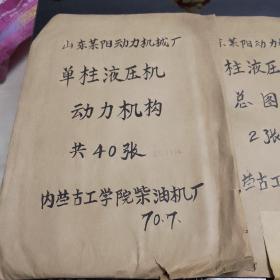 山东莱阳动力机械厂
单柱液压机
动力机构
共40张
内蒙古工学院柴油机厂
70.7.
东莱阳动力
柱液压
总图
2张
蒙古工